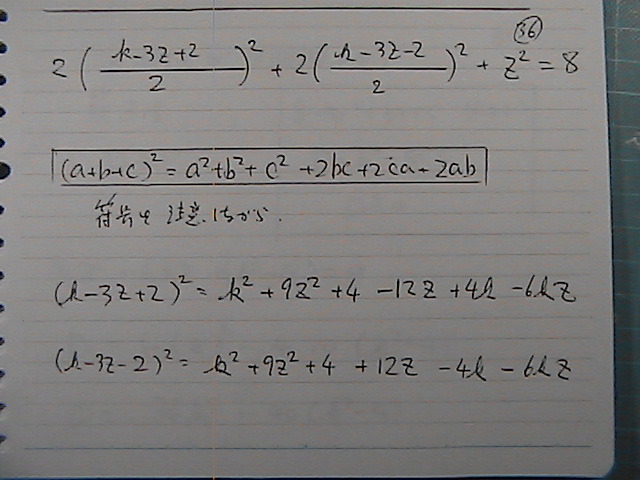 ㊱
2( (k-3z+2)/2 )² + 2( (k-3z-2)/2 )² + z² = 8
(a+b+c)² = a²+b²+c²+2bc+2ca+2ab
符号に注意しながら.
(k-3z+2)² = k²+9z²+4-12z+4k-6kz
(k-3z-2)² = k²+9z²+4+12z-4k-6kz